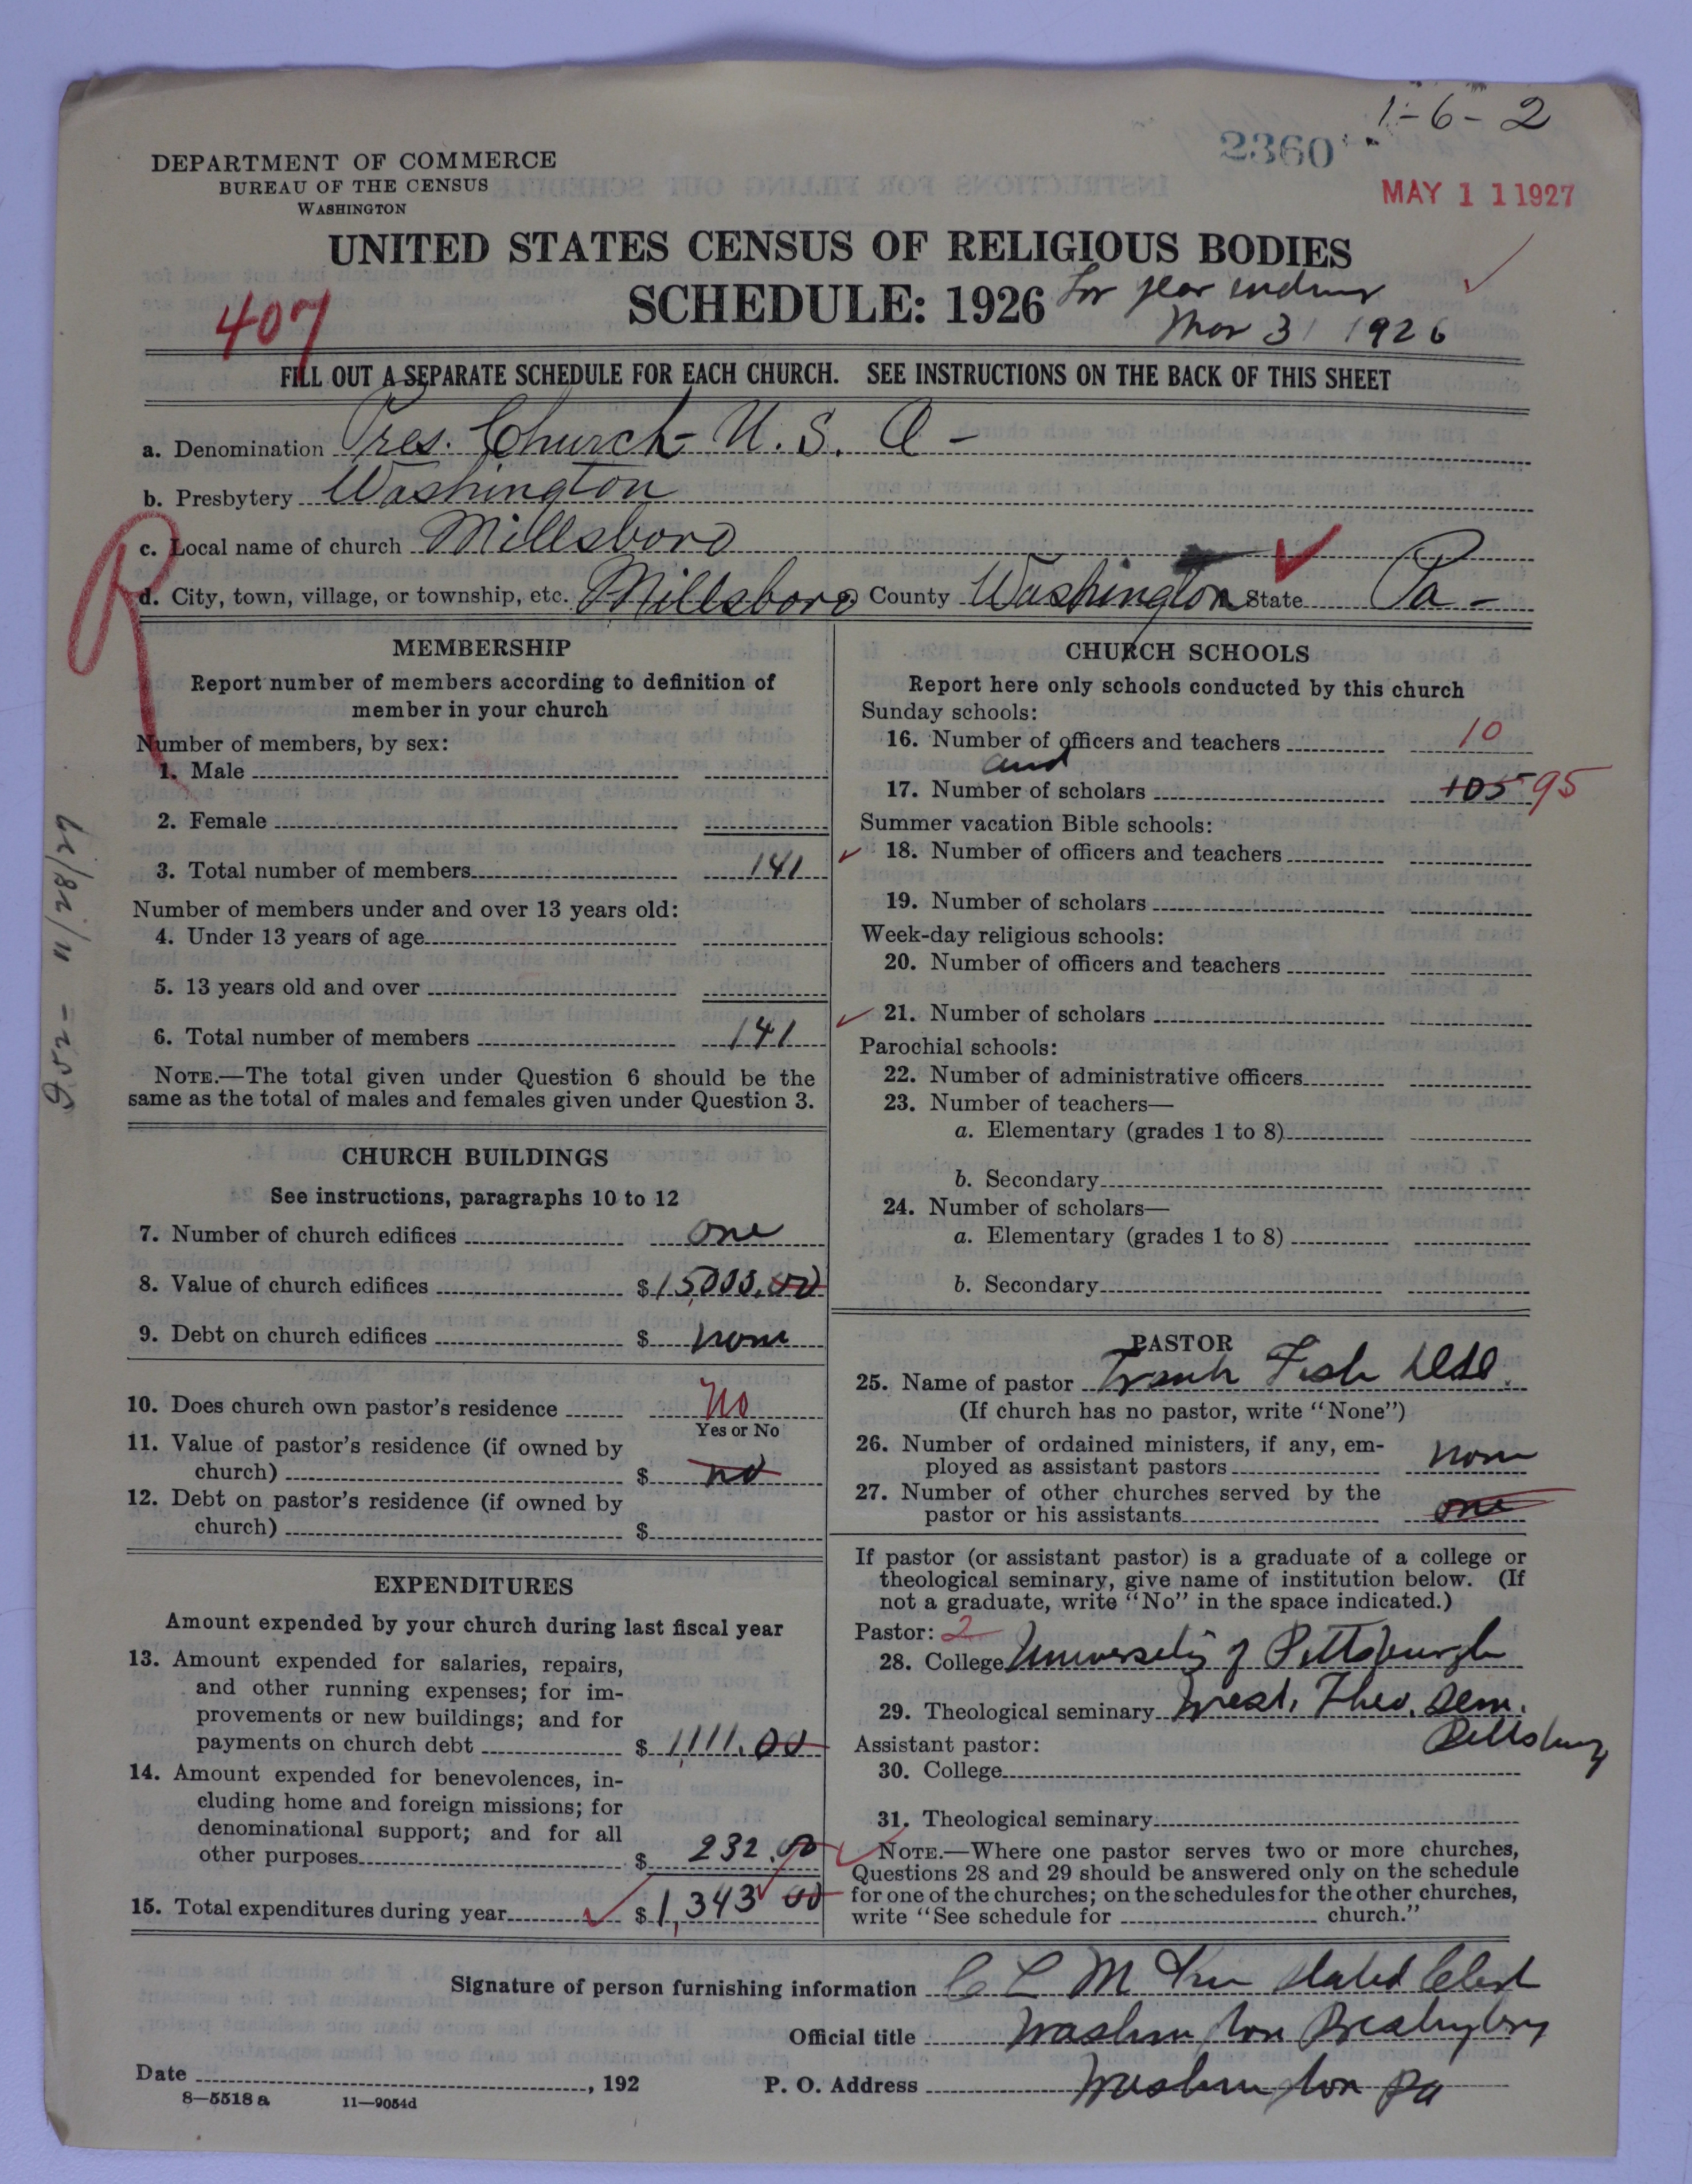 1-6-2
2360
MAY 11 1927
DEPARTMENT OF COMMERCE
BUREAU OF THE CENSUS
WASHINGTON
UNITED STATES CENSUS OF RELIGIOUS BODIES
SCHEDULE: 1926 For year ending
Mar 31 1926
407
FILL OUT A SEPARATE SCHEDULE FOR EACH CHURCH. SEE INSTRUCTIONS ON THE BACK OF THIS SHEET
a. Denomination Pres. Church - U. S. A -
b. Presbytery Washington
c. Local name of church Millsboro
d. City, town, village, or township, etc. Millsboro County Washington State Pa -
R
11/28/27
MEMBERSHIP
Report number of members according to definition of
member in your church
Number of members, by sex:
1. Male
2. Female
3. Total number of members 141
Number of members under and over 13 years old:
4. Under 13 years of age
5. 13 years old and over
6. Total number of members 141
NOTE.—The total given under Question 6 should be the
same as the total of males and females given under Question 3.
CHURCH BUILDINGS
See instructions, paragraphs 10 to 12
7. Number of church edifices one
8. Value of church edifices $15,000.00
9. Debt on church edifices $ none
10. Does church own pastor's residence No
Yes or No
11. Value of pastor's residence (if owned by
church) $ no
12. Debt on pastor's residence (if owned by
church) $
EXPENDITURES
Amount expended by your church during last fiscal year
13. Amount expended for salaries, repairs,
and other running expenses; for im-
provements or new buildings; and for
payments on church debt $ 1111.00
14. Amount expended for benevolences, in-
cluding home and foreign missions; for
denominational support; and for all
other purposes $ 232.00
15. Total expenditures during year $ 1,343 00
CHURCH SCHOOLS
Report here only schools conducted by this church
Sunday schools:
16. Number of officers and teachers 10
and
17. Number of scholars 105 95
Summer vacation Bible schools:
18. Number of officers and teachers
19. Number of scholars
Week-day religious schools:
20. Number of officers and teachers
21. Number of scholars
Parochial schools:
22. Number of administrative officers
23. Number of teachers—
a. Elementary (grades 1 to 8)
b. Secondary
24. Number of scholars—
a. Elementary (grades 1 to 8)
b. Secondary
PASTOR
25. Name of pastor Frank Fish
(If church has no pastor, write "None")
26. Number of ordained ministers, if any, em-
ployed as assistant pastors none
27. Number of other churches served by the
pastor or his assistants one
If pastor (or assistant pastor) is a graduate of a college or
theological seminary, give name of institution below. (If
not a graduate, write "No" in the space indicated.)
Pastor: 2
28. College University of Pittsburgh
29. Theological seminary West. Theo. Sem.
Pittsburg
Assistant pastor:
30. College
31. Theological seminary
NOTE.—Where one pastor serves two or more churches,
Questions 28 and 29 should be answered only on the schedule
for one of the churches; on the schedules for the other churches,
write "See schedule for church."
Signature of person furnishing information C L McKee Stated Clerk
Official title Washington Presbytery
Date , 192 P. O. Address Washington Pa
8—5518 a 11—9054d